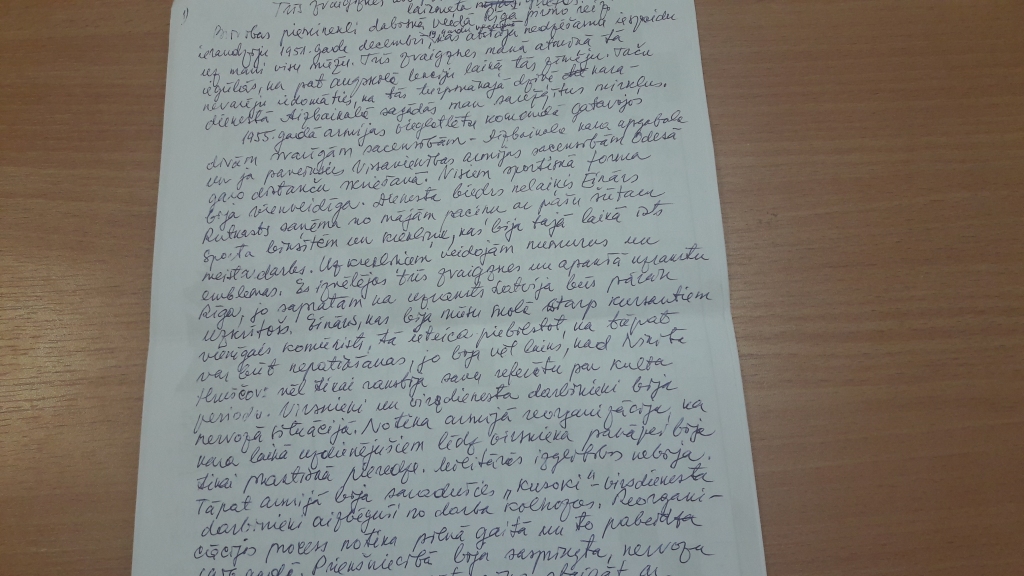 1)
Trīs zvaigznes
Brīvības pieminekli dabiskā veidā Rīgā pirmo reizi
ieraudzīju 1951. gada decembrī, kas atstāja nedzēšamu iespaidu
uz manu visu mūžu. Trīs zvaigznes manā atmiņā tā
nevarēju iedomāties, ka tās turpmākajā dzīvē kara-
dienestā Aizbaikalā sagādās man saviļņojošus mirkļus.
1955. gadā armijas vieglatlētu komandā gatavojos
divām svarīgām sacensībām - Aizbaikala kara apgabala
un ja paveiksies Vissavienības armijas sacensībām Odesā
garo distanču skriešanā. Visiem sportiskā forma
bija vienveidīga. Dienesta biedrs nelaiķis Einārs
Rutkasts saņēma no mājām paciņu ar pašu šūtiem
sporta biksītēm un krekliņu, kas bija tajā laikā īsts
meistardarbs. Uz krekliņiem veidojām numurus un
emblēmas. Es izvēlējos trīs zvaigznes un apakšā uzrakstu
Rīga, jo sapratām ka uzraksts Latvija būs pārāk
uzkrītošs. Einārs, kas bija mūsu skolā starp kursantiem
vienīgais komunists, tā ieteica piebilstot, ka tāpat
var būt nepatikšanas, jo bija vēl laiks, kad Ņikita
Hruščovs vēl tikai rakstīja savu referātu par kulta
periodu. Virsnieki un virsdienesta darbinieki bija
nervozā situācijā. Notika armijā reorganizācija, ka
kara laikā uzdienējušiem līdz virsnieka pakāpei bija
tikai praktiskā pieredze. Militārās izglītības nebija.
Tāpat armijā bija saradušies „kusoki" - virsdienesta
darbinieki aizbēguši no darba kolhozos. Reorgani-
zācijas process notika pilnā gaitā un to pabeidza
gadā. Priekšniecībā bija saspringta, nervoza